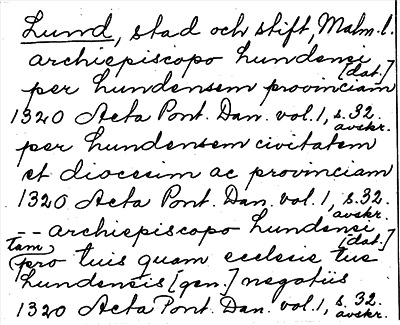 Lund, stad och stift, Malm. l.
archiepiscopo Lundensi [dat.]
per Lundensem provinciam
1320 Acta Pont. Dan. vol. 1, s. 32. avskr.
per Lundensem civitatem
et diocesim ac provinciam
1320 Acta Pont. Dan. vol. 1, s. 32. avskr.
-- archiepiscopo Lundensi [dat.]
tam
(pro tuis quam ecclesie tue
Lundensis [gen.] negotiis
1320 Acta Pont. Dan. vol. 1, s. 32. avskr.